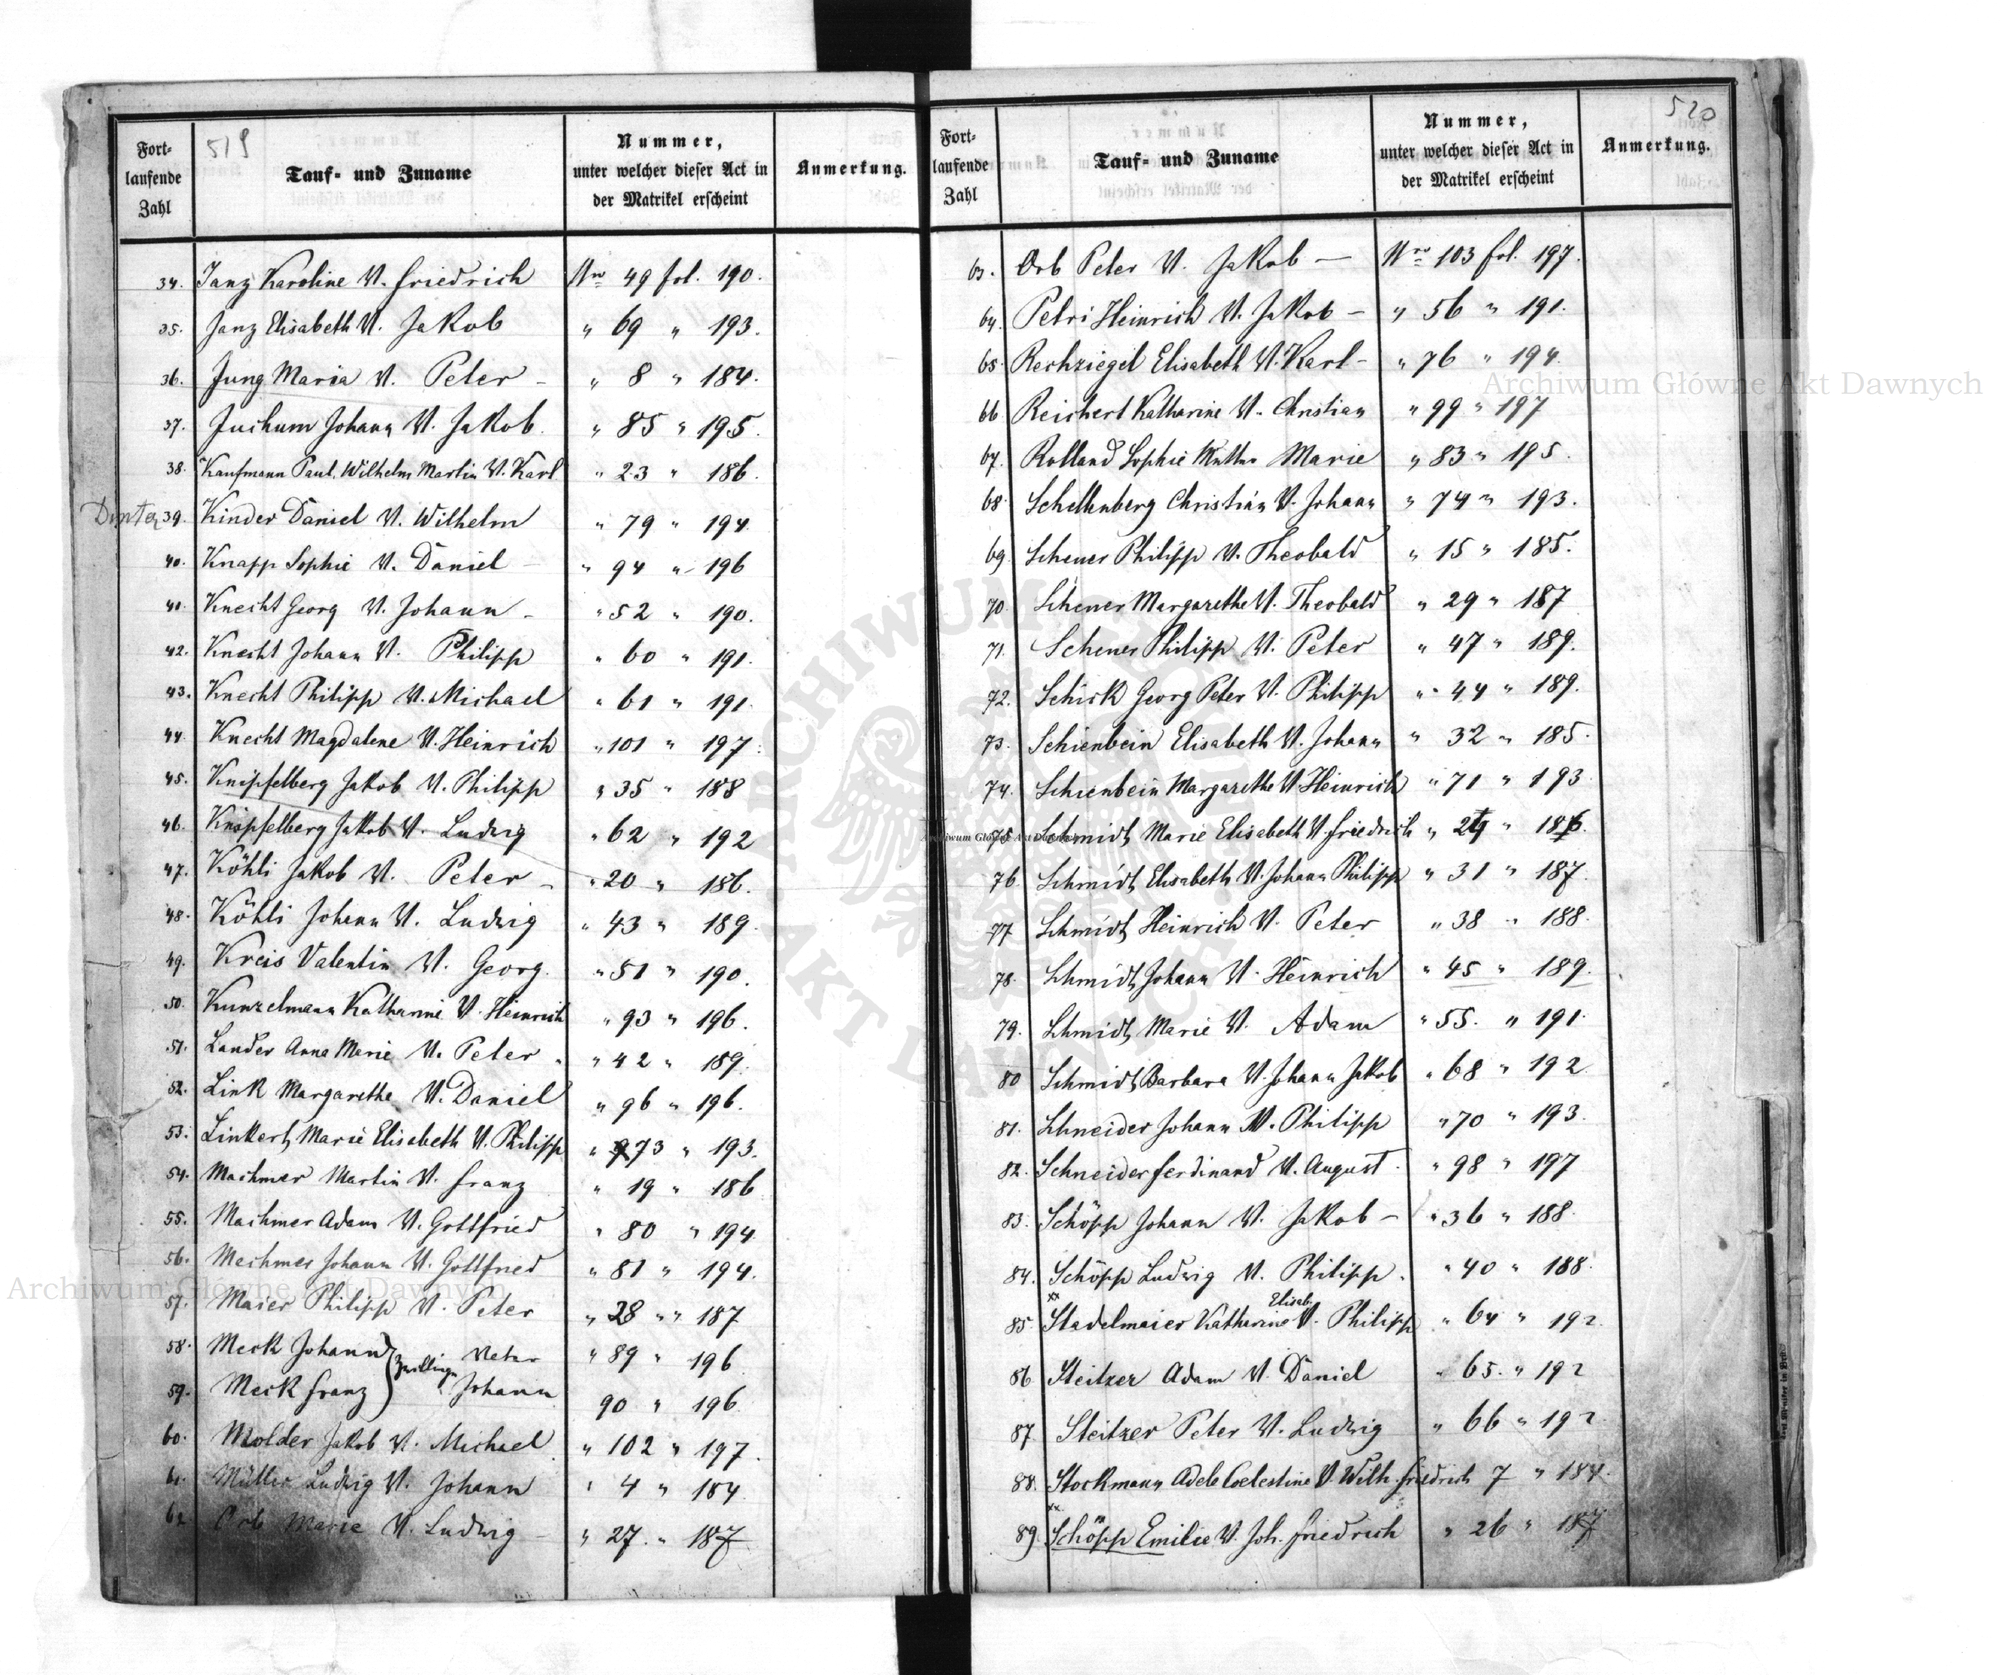 519
Fort-
laufende
Zahl
Tauf- und Zuname
Nummer,
unter welcher dieser Act in
der Matrikel erscheint
Anmerkung.
34. Janz Karoline V. Friedrich Nro 49 fol. 190.
35. Janz Elisabeth V. Jakob " 69 " 193.
36. Jung Maria V. Peter - " 8 " 184.
37. Juchum Johann V. Jakob. " 85 " 195.
38. Kaufmann Paul, Wilhelm Martin V. Karl " 23 " 186.
39. Kinder Daniel V. Wilhelm " 79 " 194.
40. Knapp Sophie V. Daniel - " 94 " 196
41. Knecht Georg V. Johann - " 52 " 190.
42. Knecht Johann V. Philipp " 60 " 191.
43. Knecht Philipp V. Michael " 61 " 191.
44. Knecht Magdalene V. Heinrich " 101 " 197.
45. Knipfelberg Jakob V. Philipp " 35 " 188
46. Knipfelberg Jakob V. Ludwig " 62 " 192
47. Köhli Jakob V. Peter - " 20 " 186.
48. Köhli Johann V. Ludwig " 43 " 189.
49. Kreis Valentin V. Georg. " 51 " 190.
50. Kunzelmann Katharine V. Heinrich " 93 " 196.
51. Lander Anna Marie V. Peter " 42 " 189.
52. Link Margarethe V. Daniel " 96 " 196.
53. Linkert Marie Elisabeth V. Philipp " 73 " 193.
54. Machmer Martin V. Franz " 19 " 186
55. Machmer Adam V. Gottfried " 80 " 194
56. Machmer Johann V. Gottfried " 81 " 194.
57. Maier Philipp V. Peter " 28 " " 187
58. Meck Johann Zwillinge Vater " 89 " 196
59. Meck Franz Johann 90 " 196
60. Molder Jakob V. Michael. " 102 " 197.
61. Müller Ludwig V. Johann " 4 " 184
62 Orb Marie V. Ludwig - " 27. " 187
520
Fort-
laufende
Zahl
Tauf- und Zuname
Nummer,
unter welcher dieser Act in
der Matrikel erscheint
Anmerkung.
63. Orb Peter V. Jakob — Nro 103 fol. 197.
64. Petri Heinrich V. Jakob - " 56 " 191.
65. Rechziegel Elisabeth V. Karl - " 76 " 194.
66 Reichert Katharine V. Christian " 99 " 197
67. Rolland Sophie Mutter Marie " 83 " 195.
68. Schellenberg Christian V. Johann " 74 " 193.
69. Scheuer Philipp V. Theobald " 15 " 185.
70. Scheuer Margarethe V. Theobald " 29 " 187
71. Scheuer Philipp V. Peter " 47 " 189.
72. Schick Georg Peter V. Philipp " 44 " 189.
73. Schienbein Elisabeth V. Johann " 32 " 185.
74. Schienbein Margarethe V. Heinrich " 71 " 193
75 Schmidt Marie Elisabeth V. Friedrich "
76. Schmidt Elisabeth V. Johann Philipp " 31 " 187.
77 Schmidt Heinrich V. Peter " 38 " 188.
78. Schmidt Johann V. Heinrich " 45 " 189.
79. Schmidt Marie V. Adam " 55. " 191.
80 Schmidt Barbara V. Johann Jakob " 68 " 192
81. Schneider Johann V. Philipp " 70 " 193.
82. Schneider Ferdinand V. August. " 98 " 197
83. Schöpp Johann V. Jakob - " 36 " 188.
84. Schöpp Ludwig V. Philipp. " 40 " 188.
85. Stadelmaier Katharine Elisab. V. Philipp " 64 " 192.
86 Steitzer Adam V. Daniel " 65. " 192
87. Steitzer Peter V. Ludwig " 66 " 192
88. Stockmann Adele Coelestine V. Wilh. Friedrich 7 " 184.
89. Schöpp Emilie V. Joh. Friedrich " 26 " 187
Archiwum Główne Akt Dawnych
Archiwum Główne Akt Dawnych
Archiwum Główne Akt Dawnych
ARCHIWUM GŁÓWNE AKT DAWNYCH